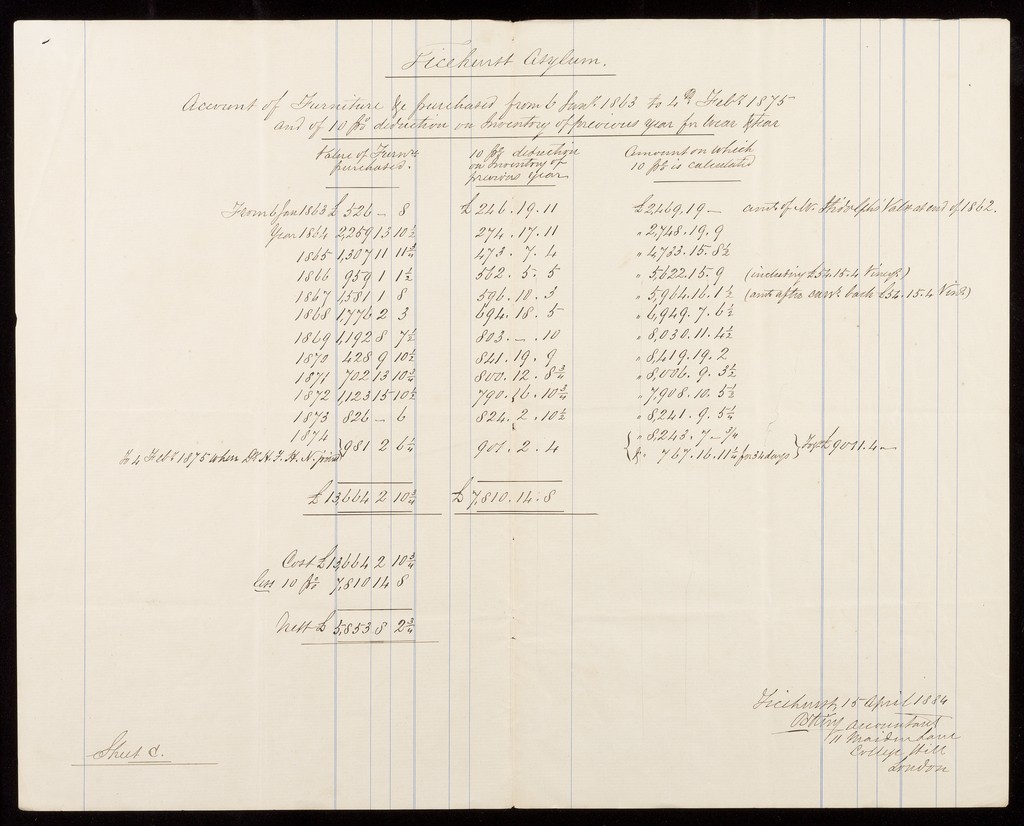 Ticehurst Asylum.
Account of Furniture &c purchased from 6 Jany. 1863 to 4th Feby. 1875
and of 10 p% deduction on Inventory of previous year for Wear & tear
Value of Furnre. purchased. 10 p% deduction on Inventory of previous year Amount on which 10 p% is calculated
From 6 Jan 1863 £ 526 – 8 £ 246 . 19 . 11 £ 2,469, 19 – amt. of Mr. Valn at end of 1862.
Year 1864 2,259 13 10½ 274 . 17 . 11 " 2,748 . 19 . 9
1865 1,307 11 11¾ 473 . 7 . 4 " 4,733 . 15 . 8½
1866 959 1 1½ 562 . 5 . 5 " 5,622 15 . 9 (including £54.15.4 )
1867 1581 1 8 596 . 10 . 3 " 5,964 . 16 . 1½ (amt. after back £54.15.4 )
1868 1,776 2 3 694 . 18 . 5 " 6,949 . 7 . 6½
1869 1,192 8 7½ 803 . – . 10 " 8,030 . 11 . 4½
1870 428 9 10½ 841 . 19 . 9 " 8,419 . 19 . 2
1871 702 13 10¾ 800 . 12 . 8¾ " 8,006 . 9 . 3½
1872 1,123 15 10½ 790 . 16 . 10¾ " 7,908 . 10 . 5½
1873 826 – 6 824 . 2 . 10½ " 8,241 . 9 . 5¼
1874 " 8,243 . 7 – ¾
To 4 Feby. 1875 when Dr H. F. H. N joined 981 2 6¼ 901 . 2 . 4 & " 767 . 16 . 11¼ for 34 days Togr £ 9011 . 4 –
£ 13,664 2 10¾ £ 7,810 . 14 . 8
Cost £ 13,664 2 10¾
less 10 p% 7,810 14 8
Nett £ 5,853 8 2¾
Ticehurst, 15 April 1884
accountant
11 Maiden Lane
College Hill
London
Sheet C.